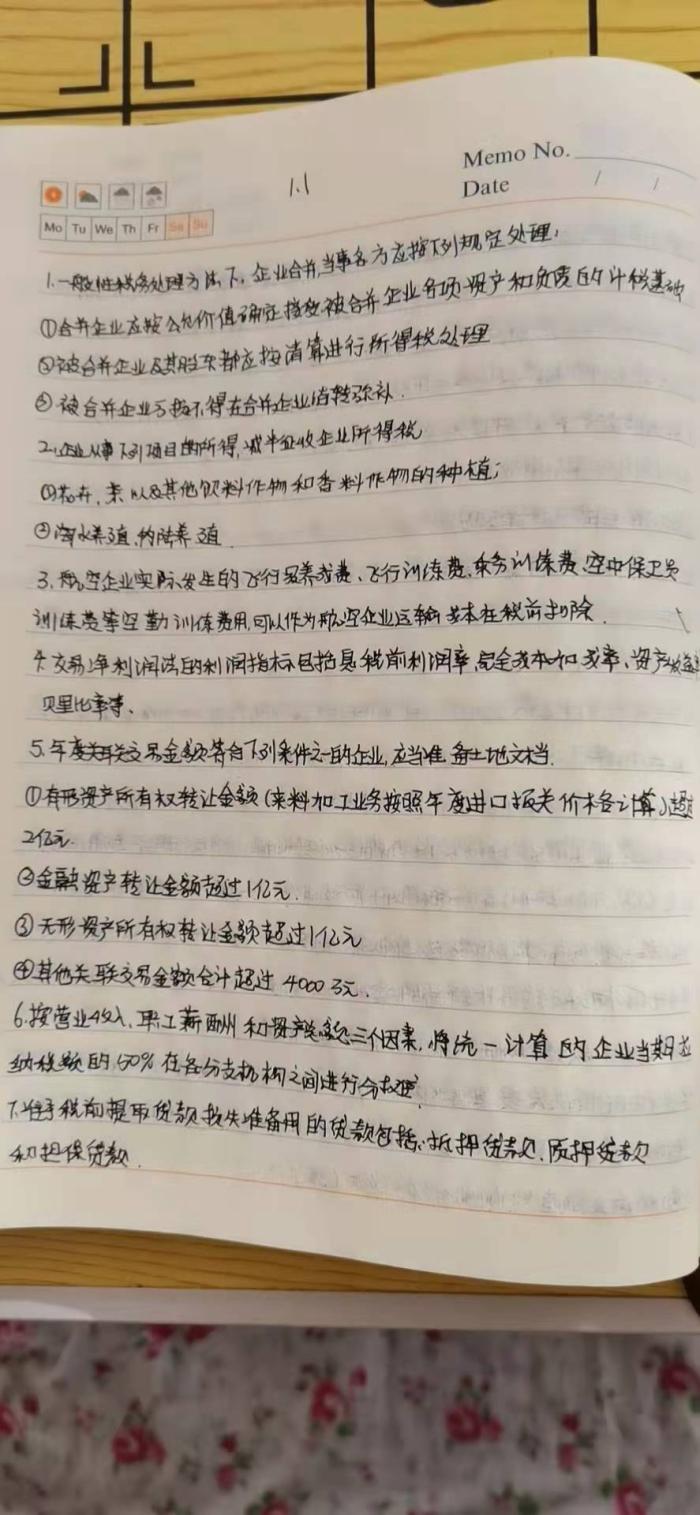 Memo No.
Date / /
1.1
Mo Tu We Th Fr Sa Su
1.一般性税务处理方法下,企业合并,当事各方应按下列规定处理:
①合并企业应按公允价值确定接受被合并企业各项资产和负债的计税基础
②被合并企业及其股东都应按清算进行所得税处理
③被合并企业亏损不得在合并企业结转弥补.
2.企业从事下列项目的所得,减半征收企业所得税
①花卉、茶以及其他饮料作物和香料作物的种植;
②海水养殖、内陆养殖
3.航空企业实际发生的飞行员养成费、飞行训练费、乘务训练费、空中保卫员
训练费等空勤训练费用,可以作为航空企业运输成本在税前扣除.
4.交易净利润法的利润指标包括息税前利润率、完全成本加成率、资产收益率
贝里比率等、
5.年度关联交易金额符合下列条件之一的企业,应当准备本地文档.
①有形资产所有权转让金额(来料加工业务按照年度进口报关价格计算)超过
2亿元.
②金融资产转让金额超过1亿元.
③无形资产所有权转让金额超过1亿元
④其他关联交易金额合计超过4000万元.
6.按营业收入、职工薪酬和资产总额三个因素,将统一计算的企业当期应
纳税额的50%在各分支机构之间进行分摊
7.准予税前提取贷款损失准备用的贷款包括:抵押贷款、质押贷款
和担保贷款.